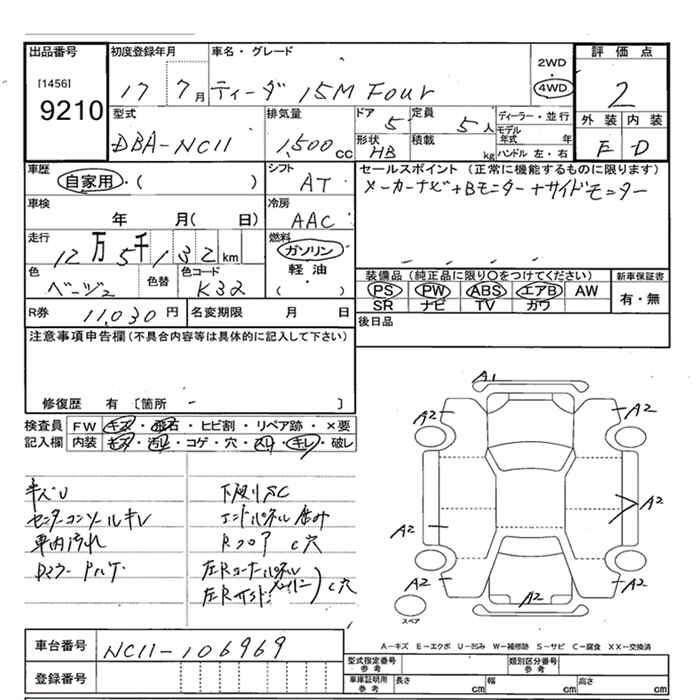 出品番号
[1456]
9210
初度登録年月
17 7月
車名・グレード
ティーダ 15M Four
2WD
・
4WD
評価点
2
外装 内装
E D
型式
DBA-NC11
排気量
1,500cc
ドア
5
定員
5人
形状
HB
積載
kg
ディーラー・並行
モデル年式 年
ハンドル 左・右
車歴
自家用・( )
シフト
AT
セールスポイント (正常に機能するものに限ります)
メーカーナビ+Bモニター+サイドモニター
車検
年 月( 日)
冷房
AAC
走行
12万5千132km
燃料
ガソリン
軽油
( )
色
ベージュ
色替
色コード
K32
装備品 (純正品に限り〇をつけてください)
PS PW ABS エアB AW
SR ナビ TV ガワ
新車保証書
有・無
R券
11,030円
名変期限 月 日
後日品
注意事項申告欄(不具合内容等は具体的に記入して下さい)
修復歴 有 〔箇所 - 〕
検査員記入欄
FW キズ・飛石・ヒビ割・リペア跡・×要
内装 キズ・汚レ・コゲ・穴・スレ・キレ・破レ
キズU
センターコンソールキレ
車内汚れ
下廻りSC
エンドパネル凹み
Rフロア C穴
左Rコーナーパネル
C穴
A1
A2
A2
A2
A2
A2
A2
A2
スペア
A-キズ E-エクボ U-凹み W-補修跡 S-サビ C-腐食 XX-交換済
車台番号
NC11-106969
登録番号
型式指定番号 参考
類別区分番号 参考
車庫証明用 参考
長さ cm 幅 cm 高さ cm